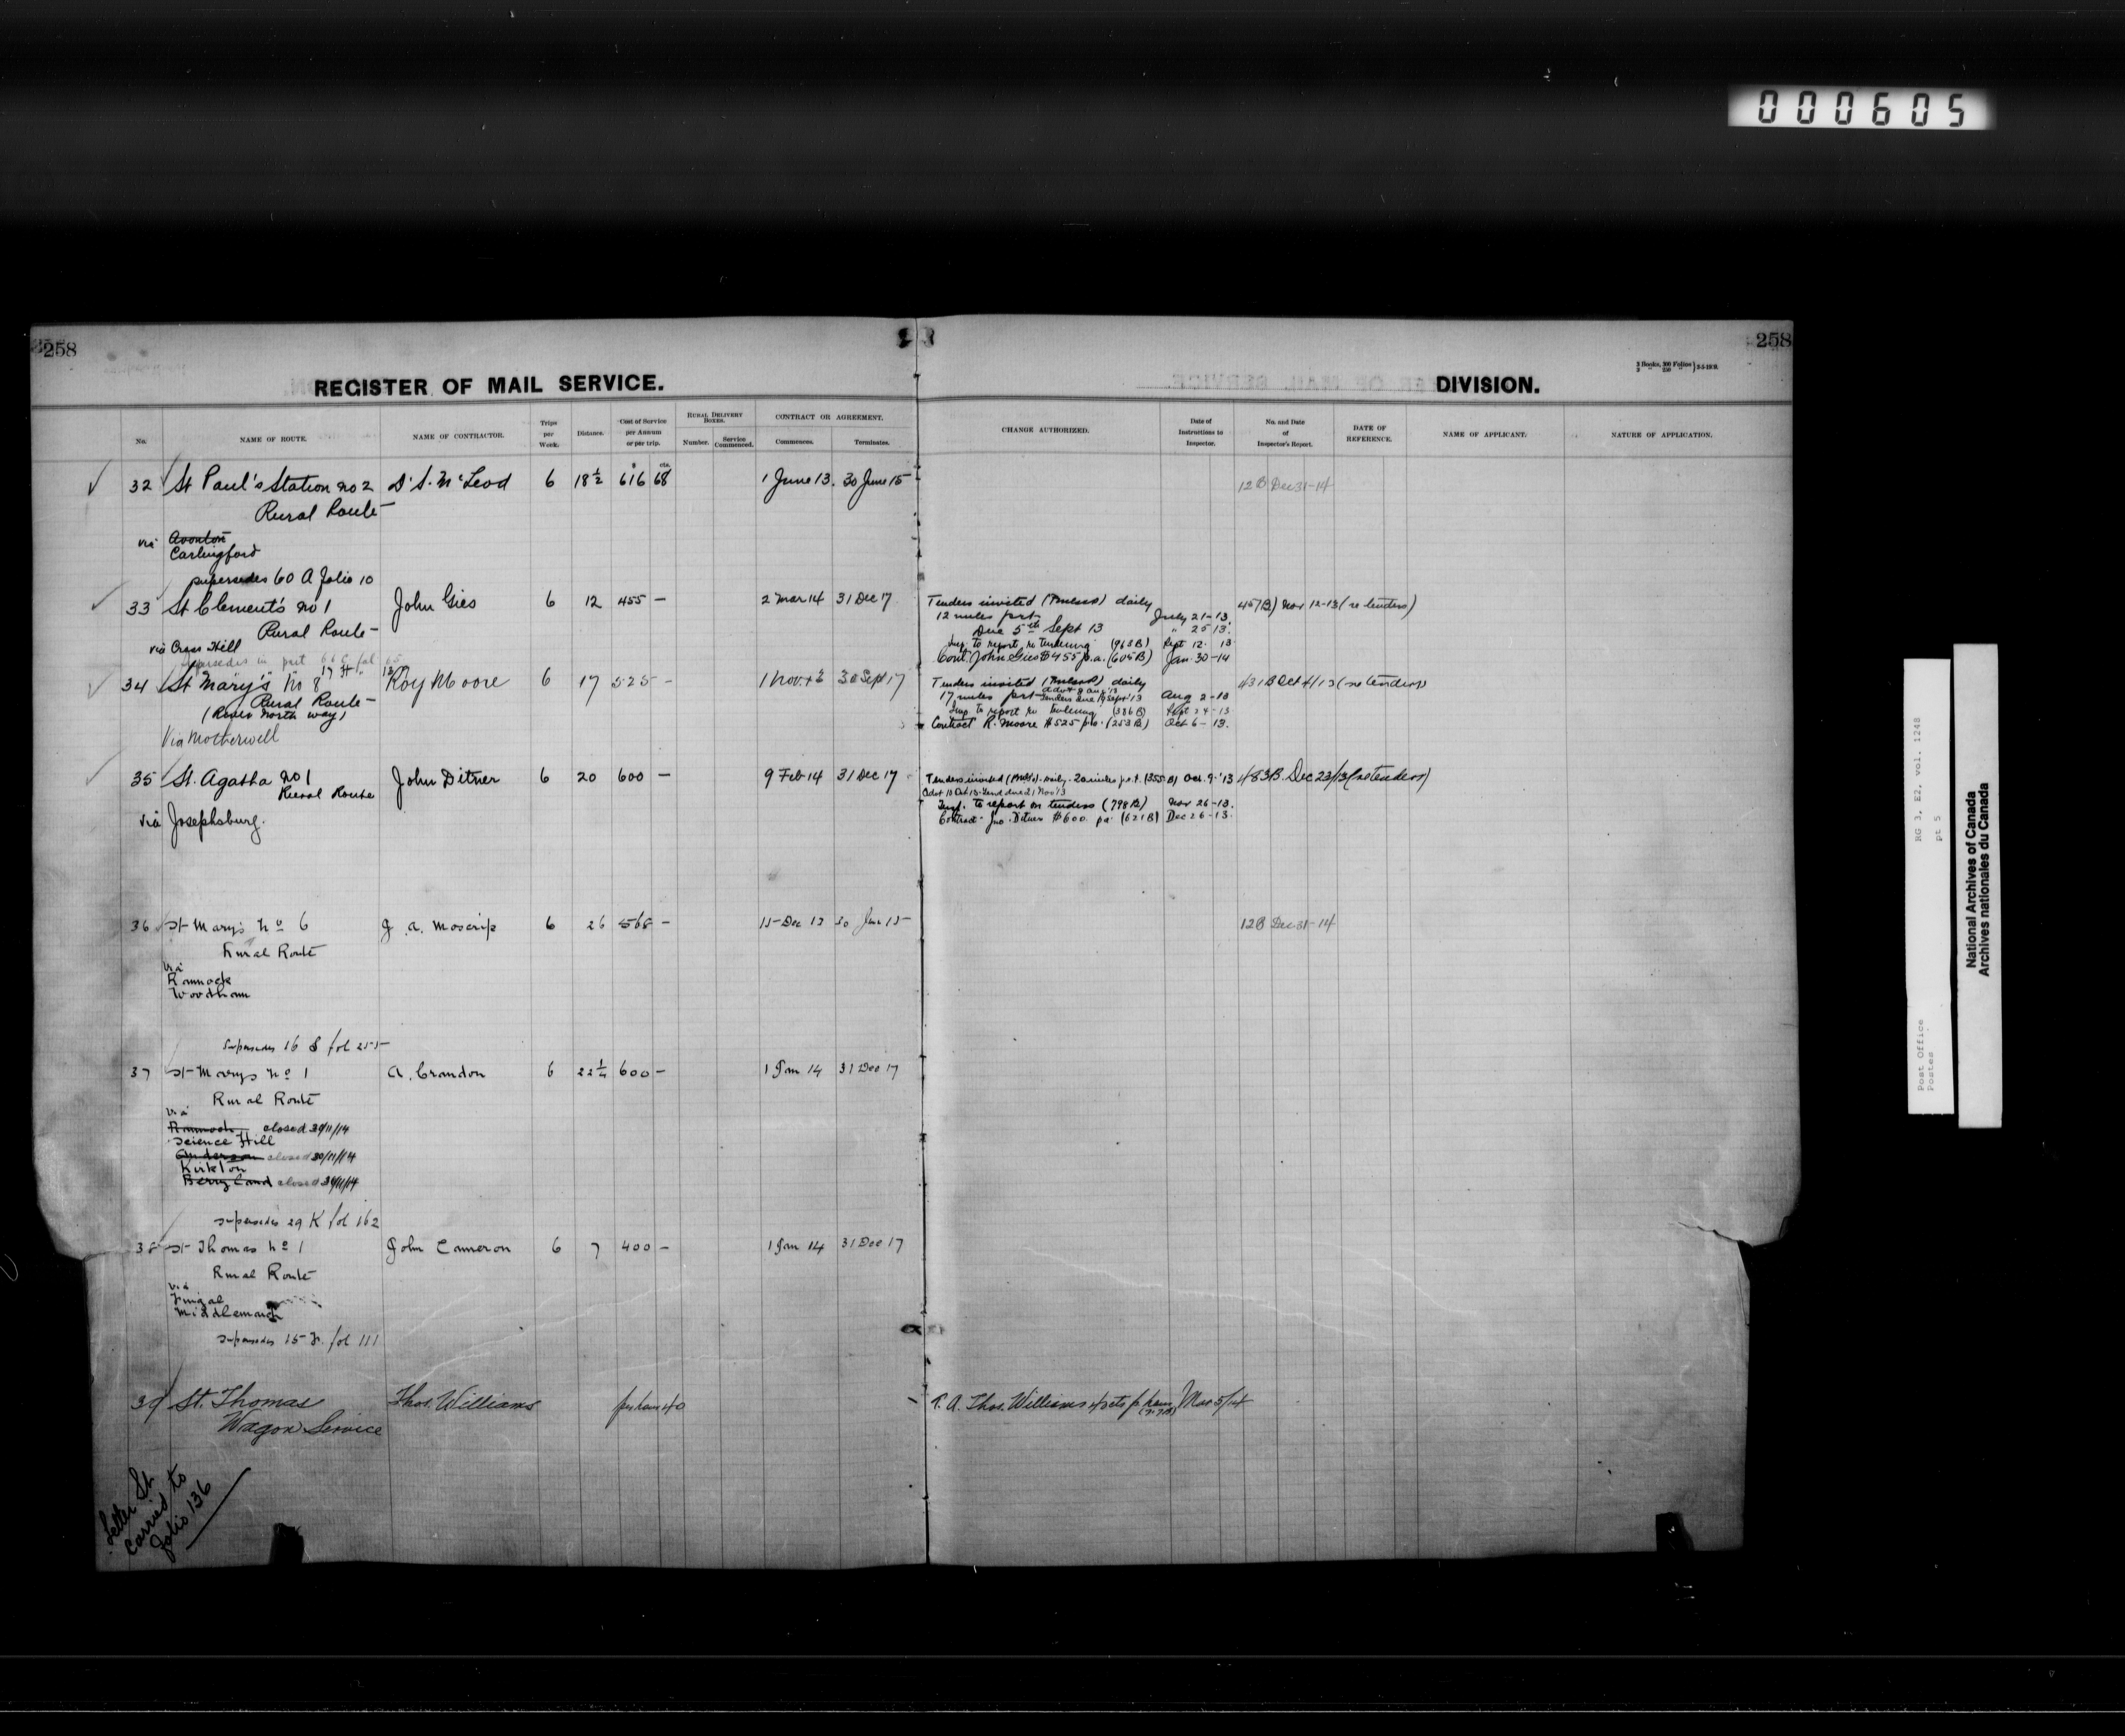 000605
258
258
REGISTER OF MAIL SERVICE.
DIVISION.
No.
NAME OF ROUTE.
NAME OF CONTRACTOR.
Trips per Week.
Distance.
Cost of Service per Annum or per trip.
RURAL DELIVERY BOXES.
Number.
Service Commenced.
CONTRACT OR AGREEMENT.
Commences.
Terminates.
CHANGE AUTHORIZED.
Date of Instructions to Inspector.
No. and Date of Inspector's Report.
DATE OF REFERENCE.
NAME OF APPLICANT.
NATURE OF APPLICATION.
32 St Paul's Station no 2 D. S. McLeod 6 18½ 616 68 1 June 13. 30 June 15 12B Dec 31-14
Rural Route
via Avonton
Carlingford
supersedes 60 A folio 10
33 St Clement's no 1 John Gies 6 12 455 — 2 Mar 14 31 Dec 17 Tenders invited daily 457B) Nov 12-13 (re tenders)
Rural Route 12 miles p.r.t. July 21-13
Due 5th Sept 13 " 25 13.
via Cross Hill Insp. to report re tendering (968B) Sept 12. 13
Cont. John Gies $455 p.a. (605B) Jan. 30-14
supersedes in part 66 C fol 65
34 St Mary's No 8 Roy Moore 6 17 525 - 1 Nov. 13 30 Sept 17 Tenders invited daily 431B Oct 4/13 (re tenders)
Rural Route 17 miles p.r.t. Tenders due 19 Sept '13 Aug 2-13
(Roves North way) Insp. to report re tendering (386B) Sept 24-13
Contract R. Moore $525 p.a. (253B) Oct 6-13.
Via Motherwell
35 St. Agatha no 1 John Ditner 6 20 600 — 9 Feb 14 31 Dec 17 Tenders invited daily. 20 miles p.r.t. (355B) Oct. 9-'13 483B. Dec 23/13 (re tenders)
Rural Route Advt 10 Oct 13 Tend due 21 Nov 13
Insp. to report on tenders (798B) Nov 26-13.
via Josephsburg. Contract - Jno. Ditner $600. pa. (621B) Dec 26-13.
36 St Marys No 6 J. A. Moscrip 6 26 568 — 15 Dec 13 30 Jun 15 12B Dec 31-14
Rural Route
via
Rannock
Woodham
Supersedes 16 S fol 255
37 St Marys No 1 A. Crandon 6 22¼ 600 — 1 Jan 14 31 Dec 17
Rural Route
via
Rannock closed 30/11/14
Science Hill
Anderson closed 30/11/14
Kirkton
Berryland closed 30/11/14
supersedes 29 K fol 162
38 St Thomas No 1 John Cameron 6 7 400 — 1 Jan 14 31 Dec 17
Rural Route
via
Fingal
Middlemarch
supersedes 15 F. fol 111
39 St. Thomas Thos. Williams per hour 40 T. A. Thos. Williams 40cts p hour Mar 5/14
Wagon Service
Letter St
carried to
folio 136
Post Office
Postes
RG 3, E2, vol. 1248
pt 5
National Archives of Canada
Archives nationales du Canada